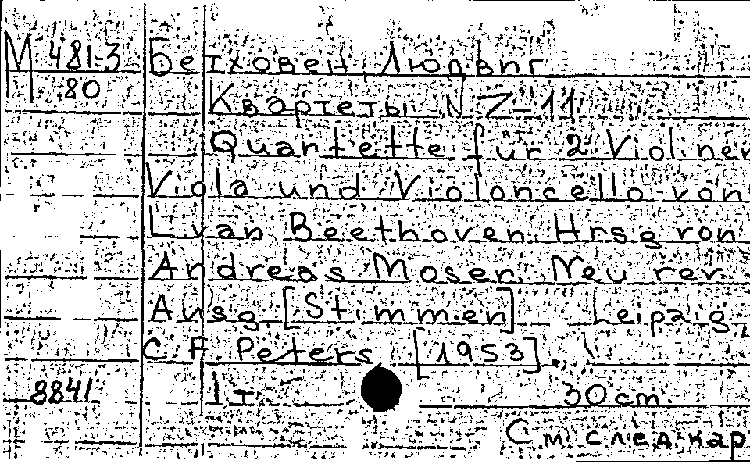 М 481-3 Бетховен, Людвиг
80 Квартеты N 7-11
Quartette für 2 Violinen
Viola und Violoncello von
L. van Beethoven. Hrsg von
Andreas Moser. Neu rev.
Ausg. [Stimmen] Leipzig,
C. F. Peters [1953].
8841 1 т. 30 cm.
См. след. кар